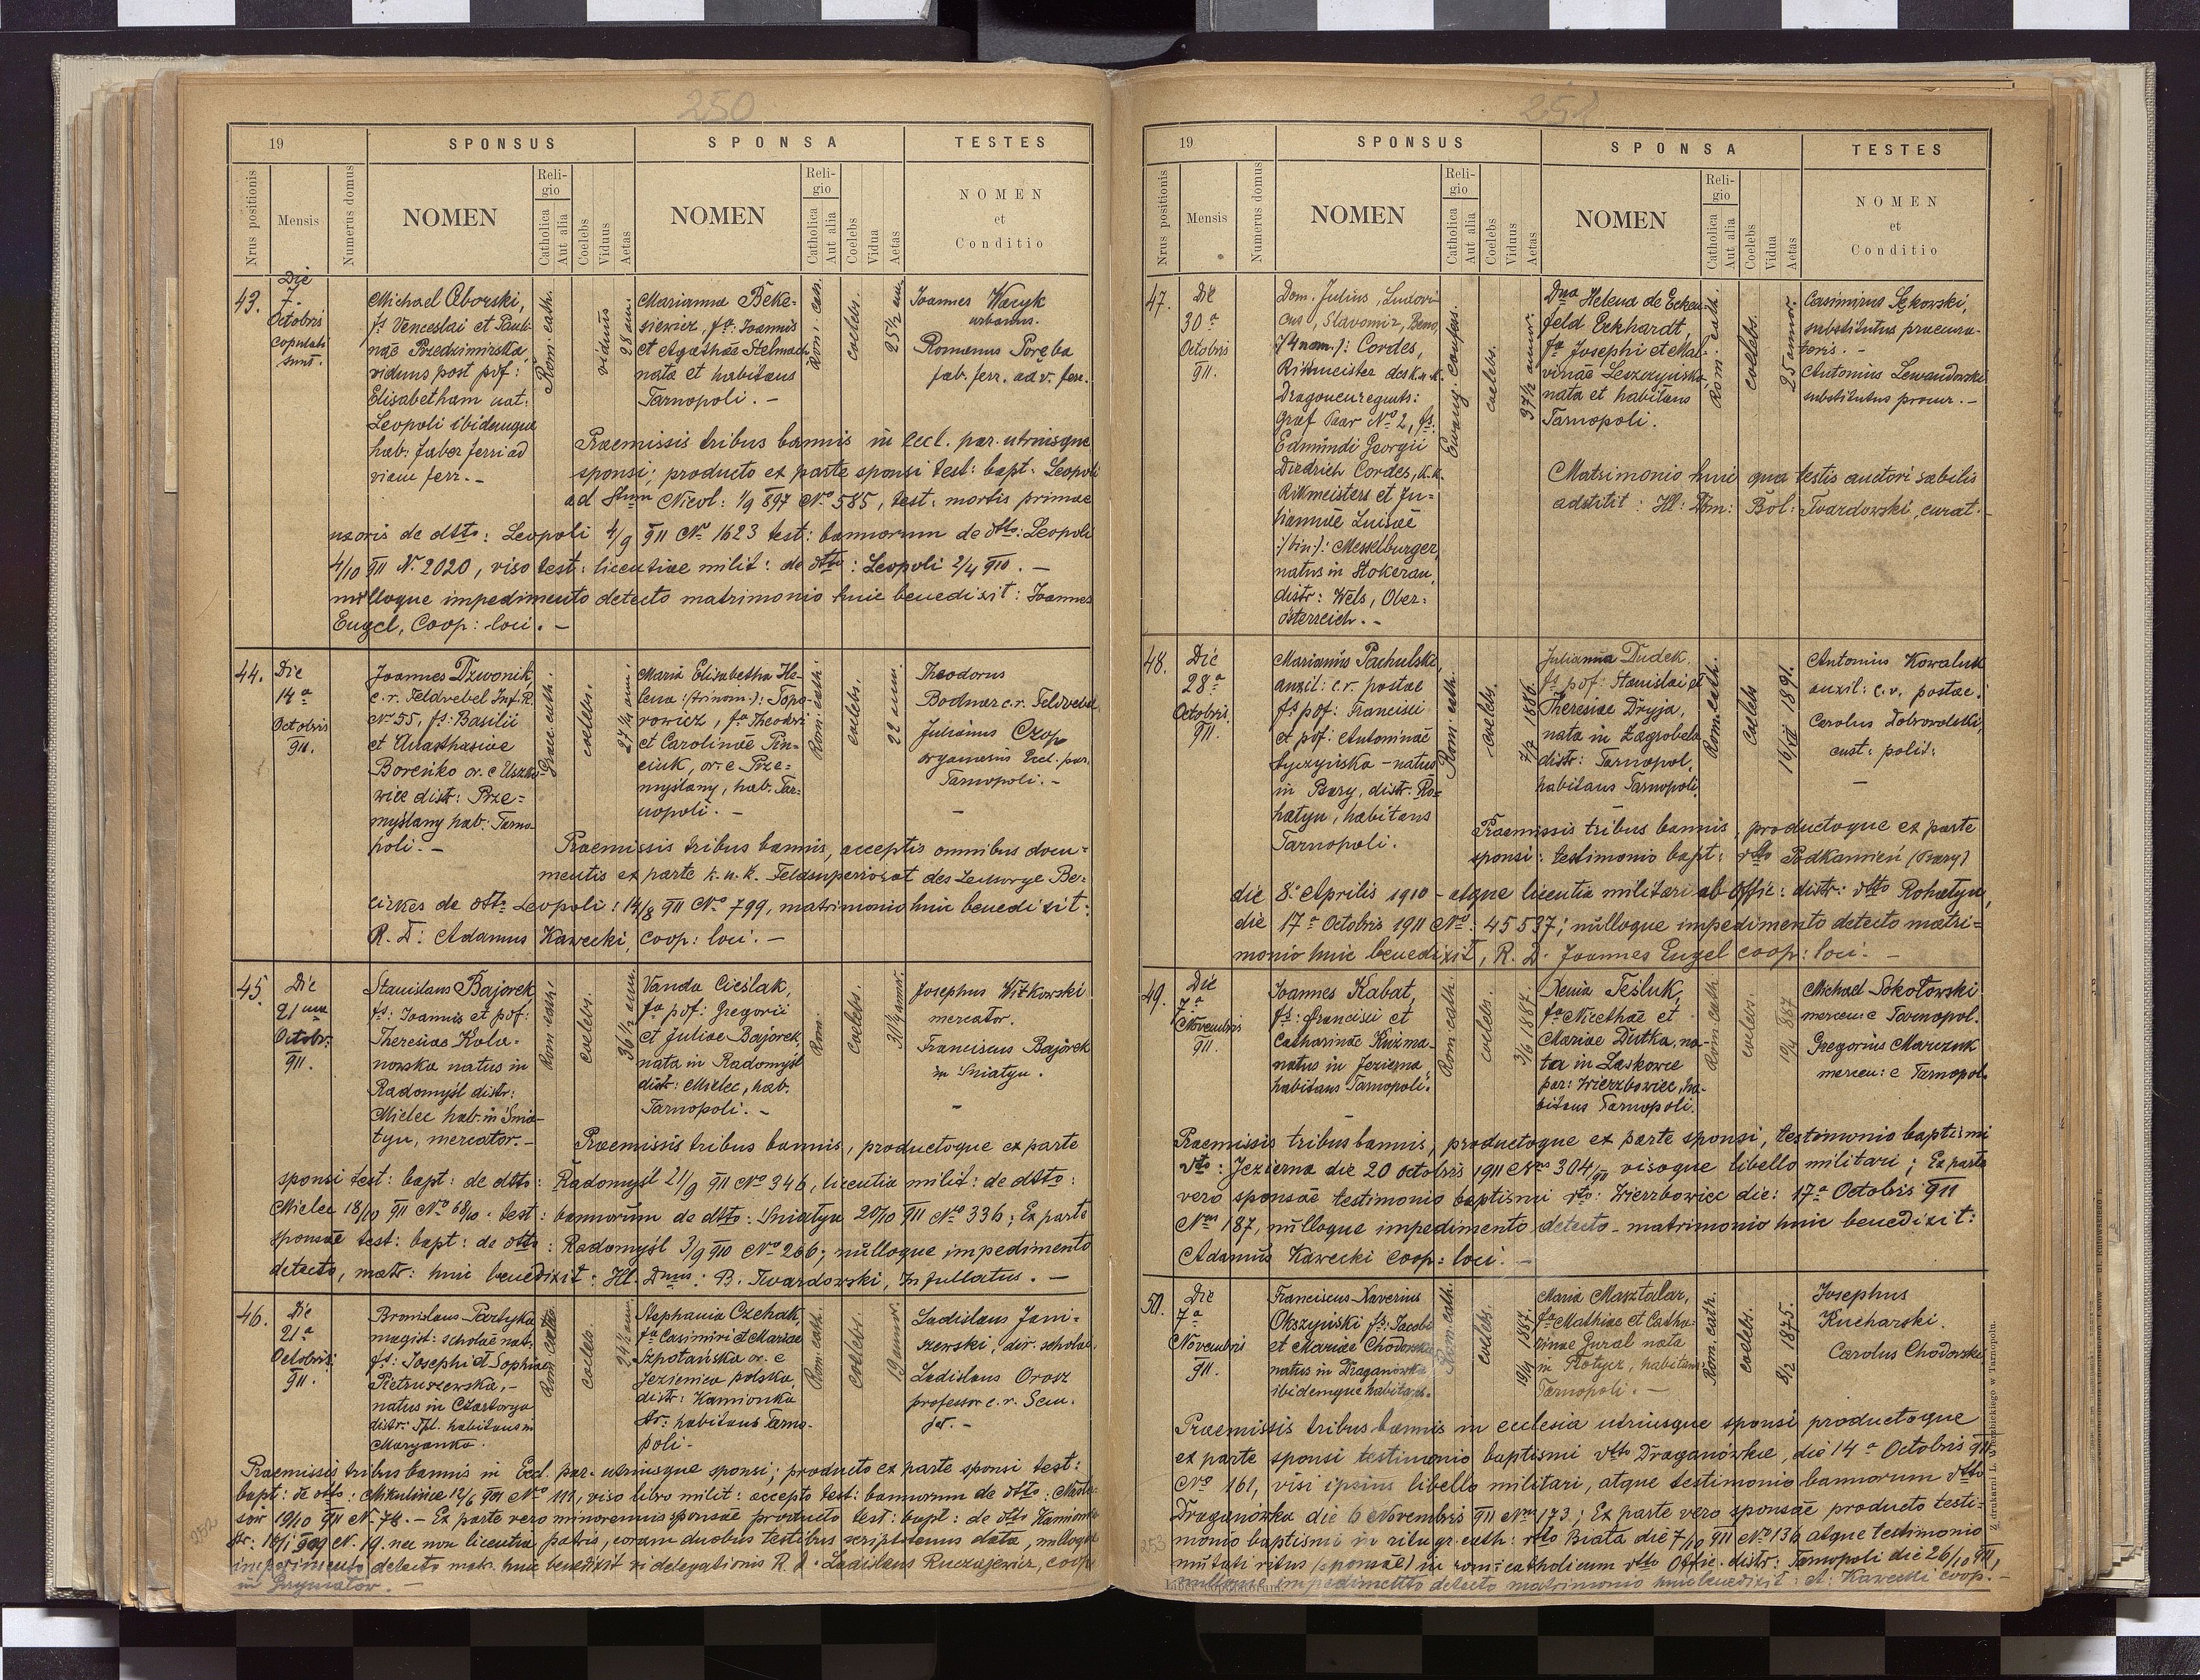 250
19
SPONSUS
SPONSA
TESTES
Nrus positionis
Mensis
Numerus domus
NOMEN
Religio
Catholica
Aut alia
Coelebs
Viduus
Aetas
NOMEN
Religio
Catholica
Aut alia
Coelebs
Vidua
Aetas
NOMEN
et
Conditio
43.
Die
7.
Octobris
copulati
sunt.
Michael Oborski,
fs Venceslai et Pauli-
nae Przedzimirska,
viduus post pof:
Elisabetham nat:
Leopoli ibidemque
hab: faber ferri ad
viam ferr. -
Rom: cath.
viduus
28 ann.
Marianna Beke-
siewicz, fa: Joannis
et Agathae Stelmach
nata et habitans
Tarnopoli. -
Rom: cath.
coelebs.
25½ ann.
Joannes Wacyk
urbanus.
Romanus Poręba
fab. ferr. ad v. ferr.
Praemissis tribus bannis in Eccl. par. utriusque
sponsi; producto ex parte sponsi test: bapt. Leopoli
ad Stum Nicol: 1/9 897 No 585, test: mortis primae
uxoris de dtto: Leopoli 4/9 911 No 1623 test: bannorum de dtto: Leopoli
4/10 911 N. 2020, viso test: licentiae milit: de dtto: Leopoli 2/4 910. -
nulloque impedimento detecto matrimonio huic benedixit: Joannes
Engel, Coop: loci. -
44.
Die
14a
Octobris
911.
Joannes Dzwonik,
c. r. Feldvebel Inf. R.
No 55, fs: Basilii
et Anasthasiae
Boreńko or. e Uszko-
wice distr: Prze-
myślany hab: Tarno-
poli. -
Graec. cath.
coelebs.
27¼ ann.
Maria Elisabetha He-
lena :/trinom.): Topo-
rowicz, fa Theodori
et Carolinae Pin-
ciuk, or. e Prze-
myślany, hab. Tar-
nopoli. -
Rom: cath.
coelebs.
22 ann.
Theodorus
Bodnar c. r. Feldvebel
Julianus Czop
organarius Eccl. par.
Tarnopoli. -
Praemissis tribus bannis, acceptis omnibus docu-
mentis ex parte k. u. k. Feldsuperiorat des Seelsorge Be-
zirkes de dtto Leopoli: 14/8 911 No 799, matrimonio huic benedixit:
R. D: Adamus Kawecki, coop: loci. -
45.
Die
21ma
Octobr.
911.
Stanislaus Bajorek
fs: Joannis et pof:
Theresiae Kola-
nowska natus in
Radomyśl distr:
Mielec hab. in Śnia-
tyn, mercator. -
Rom: cath.
coelebs.
36½ ann.
Vanda Cieślak,
fa pof: Gregorii
et Juliae Bajorek,
nata in Radomyśl
distr: Mielec, hab.
Tarnopoli. -
Rom:
Coelebs.
30½ annor.
Josephus Witkowski
mercator.
Franciscus Bajorek
in Sniatyn.
Praemissis tribus bannis, productoque ex parte
sponsi test: bapt: de dtto: Radomyśl 21/9 911 No 346, licentia milit: de dtto:
Mielec 18/10 911 No 68/10. test: bannorum de dtto: Śniatyn 20/10 911 No 336; Ex parte
sponsae test: bapt: de dtto: Radomyśl 3/9 910 No 266; nulloque impedimento
detecto, matr: huic benedixit: Hl. Dnus: B. Twardowski, Infullatus. -
46.
Die
21a
Octobris
911.
Bronislaus Partyka
magist: scholae nat:
fs: Josephi et Sophiae
Pietruszewska, -
natus in Czartorya
distr: Tpl. habitans in
Maryanka.
Rom: cath.
coelebs.
24½ ann.
Stephania Czehak,
fa Casimiri et Mariae
Szpotańska or. e
Jezienica polska,
distr: Kamionka
str: habitans Tarno-
poli -
Rom: cath.
Coelebs.
19 annor.
Ladislaus Jani-
szewski, dir. scholae.
Ladislaus Orosz
professor c. r. Sem.
Praemissis tribus bannis in Eccl. par. utriusque sponsi; producto ex parte sponsi test:
bapt: de dtto: Mikulińce 12/6 911 No 111, viso libro milit: accepto test: bannorum de dtto:
sów 19/10 911 N. 78. - Ex parte vero minorennis sponsae producto test: bapt: de dtto Kamionka
str: 16/1 909 N. 19. nec non licentia patris, coram duobus testibus scriptotenus data, nulloque
impedimento detecto matr. huic benedixit vi delegationis R. D. Ladislaus coop.
in
252
251
19
SPONSUS
SPONSA
TESTES
Nrus positionis
Mensis
Numerus domus
NOMEN
Religio
Catholica
Aut alia
Coelebs
Viduus
Aetas
NOMEN
Religio
Catholica
Aut alia
Coelebs
Vidua
Aetas
NOMEN
et
Conditio
47.
Die
30a
Octobris
911.
Dom. Julius, Ludovi-
cus, Slavomir, Beno,
:/4 nom.): Cordes,
Rittmeister des k. u. k.
Dragonenregmts:
Graf Paar No 2, fs:
Edmundi Georgii
Diedrich Cordes, k. k.
Rittmeisters et Jo-
hannae Luisae
:/bin.): Messelburger,
natus in Stokerau,
distr: Wels, Ober-
österreich. -
Ewang. confess.
coelebs.
37½ annor.
Dna Helena de Ecken-
feld Eckhardt,
fa Josephi et Mal-
vinae Leszczyńska,
nata et habitans
Tarnopoli.
Rom: cath.
coelebs.
25 annor.
Casimirus Sękowski,
substitutus procura-
toris. -
Antonius Lewandowski
substitutus procur. -
Matrimonio huic qua testis auctorisabilis
adstitit: Hl: Dom: Bol: Twardowski, curat. -
48.
Die
28a
Octobris
911.
Marianus Pachulski,
auxil: c. r. postae
fs pof: Francisci
et pof: Antoninae
Łyczyńska - natus
in Bzery, distr. Ro-
hatyn, habitans
Tarnopoli.
Rom: cath.
coelebs.
7/7 1886.
Julianna Dudek
fa pof: Stanislai et
Theresiae Dryja,
nata in Zagrobela
distr: Tarnopol,
habitans Tarnopoli.
Rom: cath.
Coelebs
16/II 1891.
Antonius Kowaluk
auxil: c. r. postae.
Carolus Dobrowolski,
cust: polit:
Praemissis tribus bannis, productoque ex parte
sponsi: testimonio bapt: dtto Podkamień
die 8a Aprilis 1910 - atque licentia militari ab Offic: distr: dtto Rohatyn,
die 17a Octobris 1911 No: 45537; nulloque impedimento detecto matri-
monio huic benedixit, R. D. Joannes Engel coop: loci. -
49.
Die
7a
Novembris
911.
Joannes Kabat,
fs: Francisci et
Catharinae Kuzma -
natus in Jezierna,
habitans Tarnopoli.
Rom: cath.
coelebs.
3/6 1887.
Xenia Tesluk,
fa Nicethae et
Mariae Distka, na-
ta in Laskowce
par: Wierzbowiec, ha-
bitans Tarnopoli.
Rom: cath.
coelebs.
19/4 887
Michael Sokołowski
mercen: e Tarnopol.
Gregorius Marczuk
mercen: e Tarnopol.
Praemissis tribus bannis, productoque ex parte sponsi, testimonio baptismi
dtto: Jezierna die 20 octobris 1911 Nrus 304/911 visoque libello militari; Ex parte
vero sponsae testimonio baptismi dtto: Wierzbowiec die: 17a Octobris 911
Nrus 187, nulloque impedimento detecto - matrimonio huic benedixit:
Adamus Kawecki coop: loci. -
50.
Die
7a
Novembris
911.
Franciscus Xaverius
Okszyński fs: Jacobi
et Mariae Chodorska
natus in Draganówka
ibidemque habitans.
Rom: cath.
coelebs.
19/9 1887.
Maria Masztalar,
fa Mathiae et Catha-
rinae Jural nata
in Płotycz, habitans
Tarnopoli. -
Rom: cath.
coelebs.
8/2 1875.
Josephus
Kucharski.
Carolus Chodorski
Praemissis tribus bannis in ecclesia utriusque sponsi productoque
ex parte sponsi testimonio baptismi dtto Draganówka, die 14a Octobris 911
No 161, visi ipsius libello militari, atque testimonio bannorum dtto
Draganówka die 6 Novembris 911 Nro 173; Ex parte vero sponsae producto testi-
monio baptismi in ritu gr. cath: dtto Biała die 7/10 911 No 136 atque testimonio
mutati ritus (sponsae) in rom: catholicum dtto Offic. distr. Tarnopoli die 26/10 911,
nulloque impedimento detecto matrimonio huic benedixit: A. Kawecki coop. -
253
Z drukarni L. Wierzbickiego w Tarnopolu.